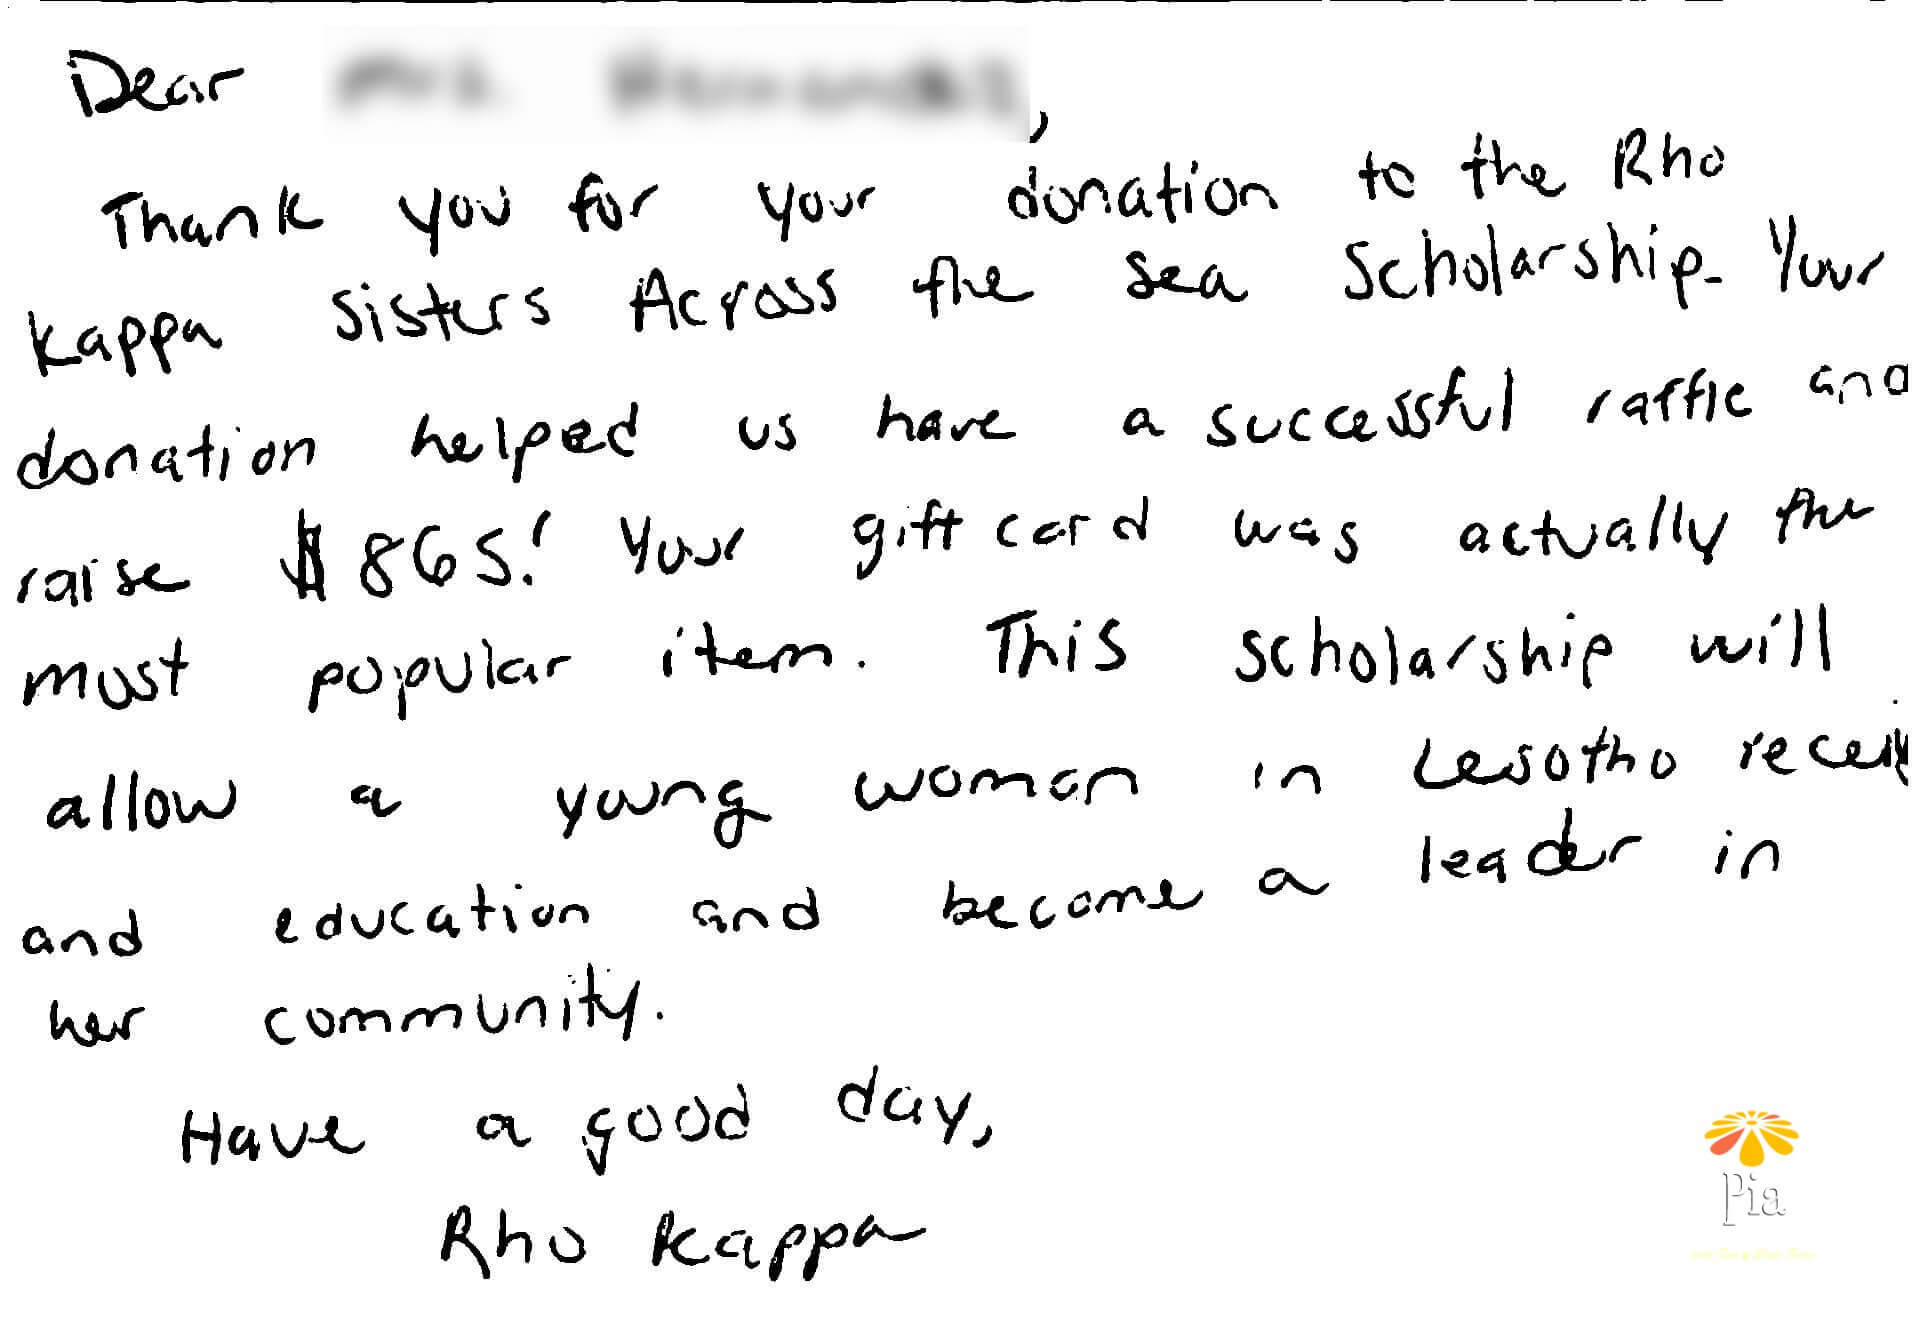 Dear ,
Thank you for your donation to the Rho
Kappa Sisters Across the Sea Scholarship. Your
donation helped us have a successful raffle and
raise $865! Your gift card was actually the
most popular item. This scholarship will
allow a young woman in Lesotho receiv
and education and become a leader in
her community.
Have a good day,
Rho Kappa
Pia